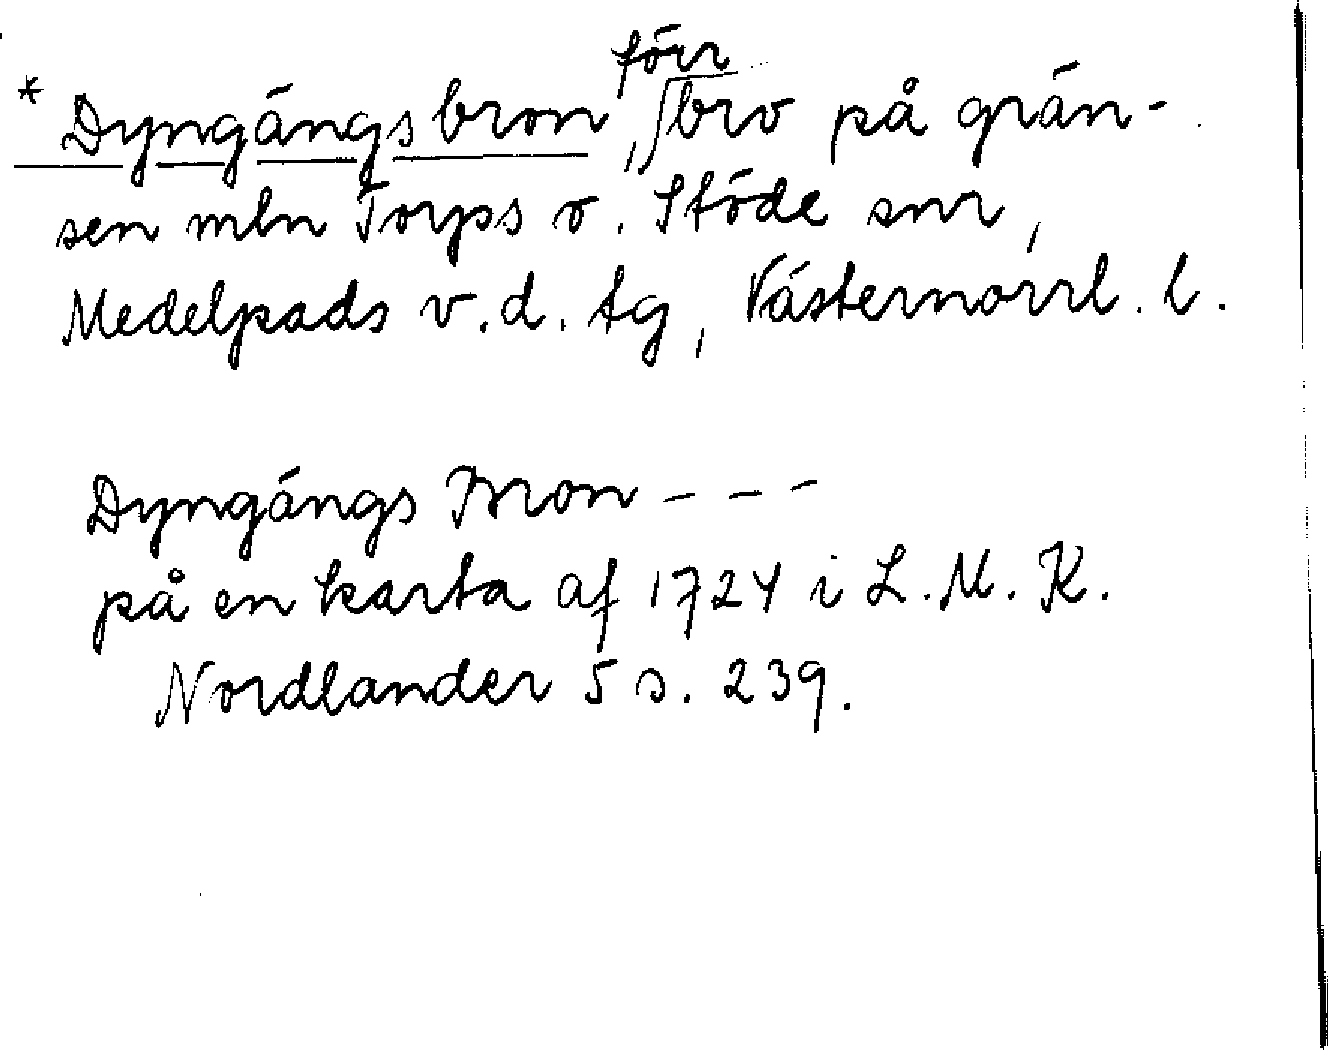 * Dyngängsbron, förr bro på grän-
sen mln Torps o. Stöde snr,
Medelpads v. d. tg, Västernorrl. l.
Dyngängs Bron - - -
på en karta af 1724 i L. M. K.
Nordlander 5 s. 239.